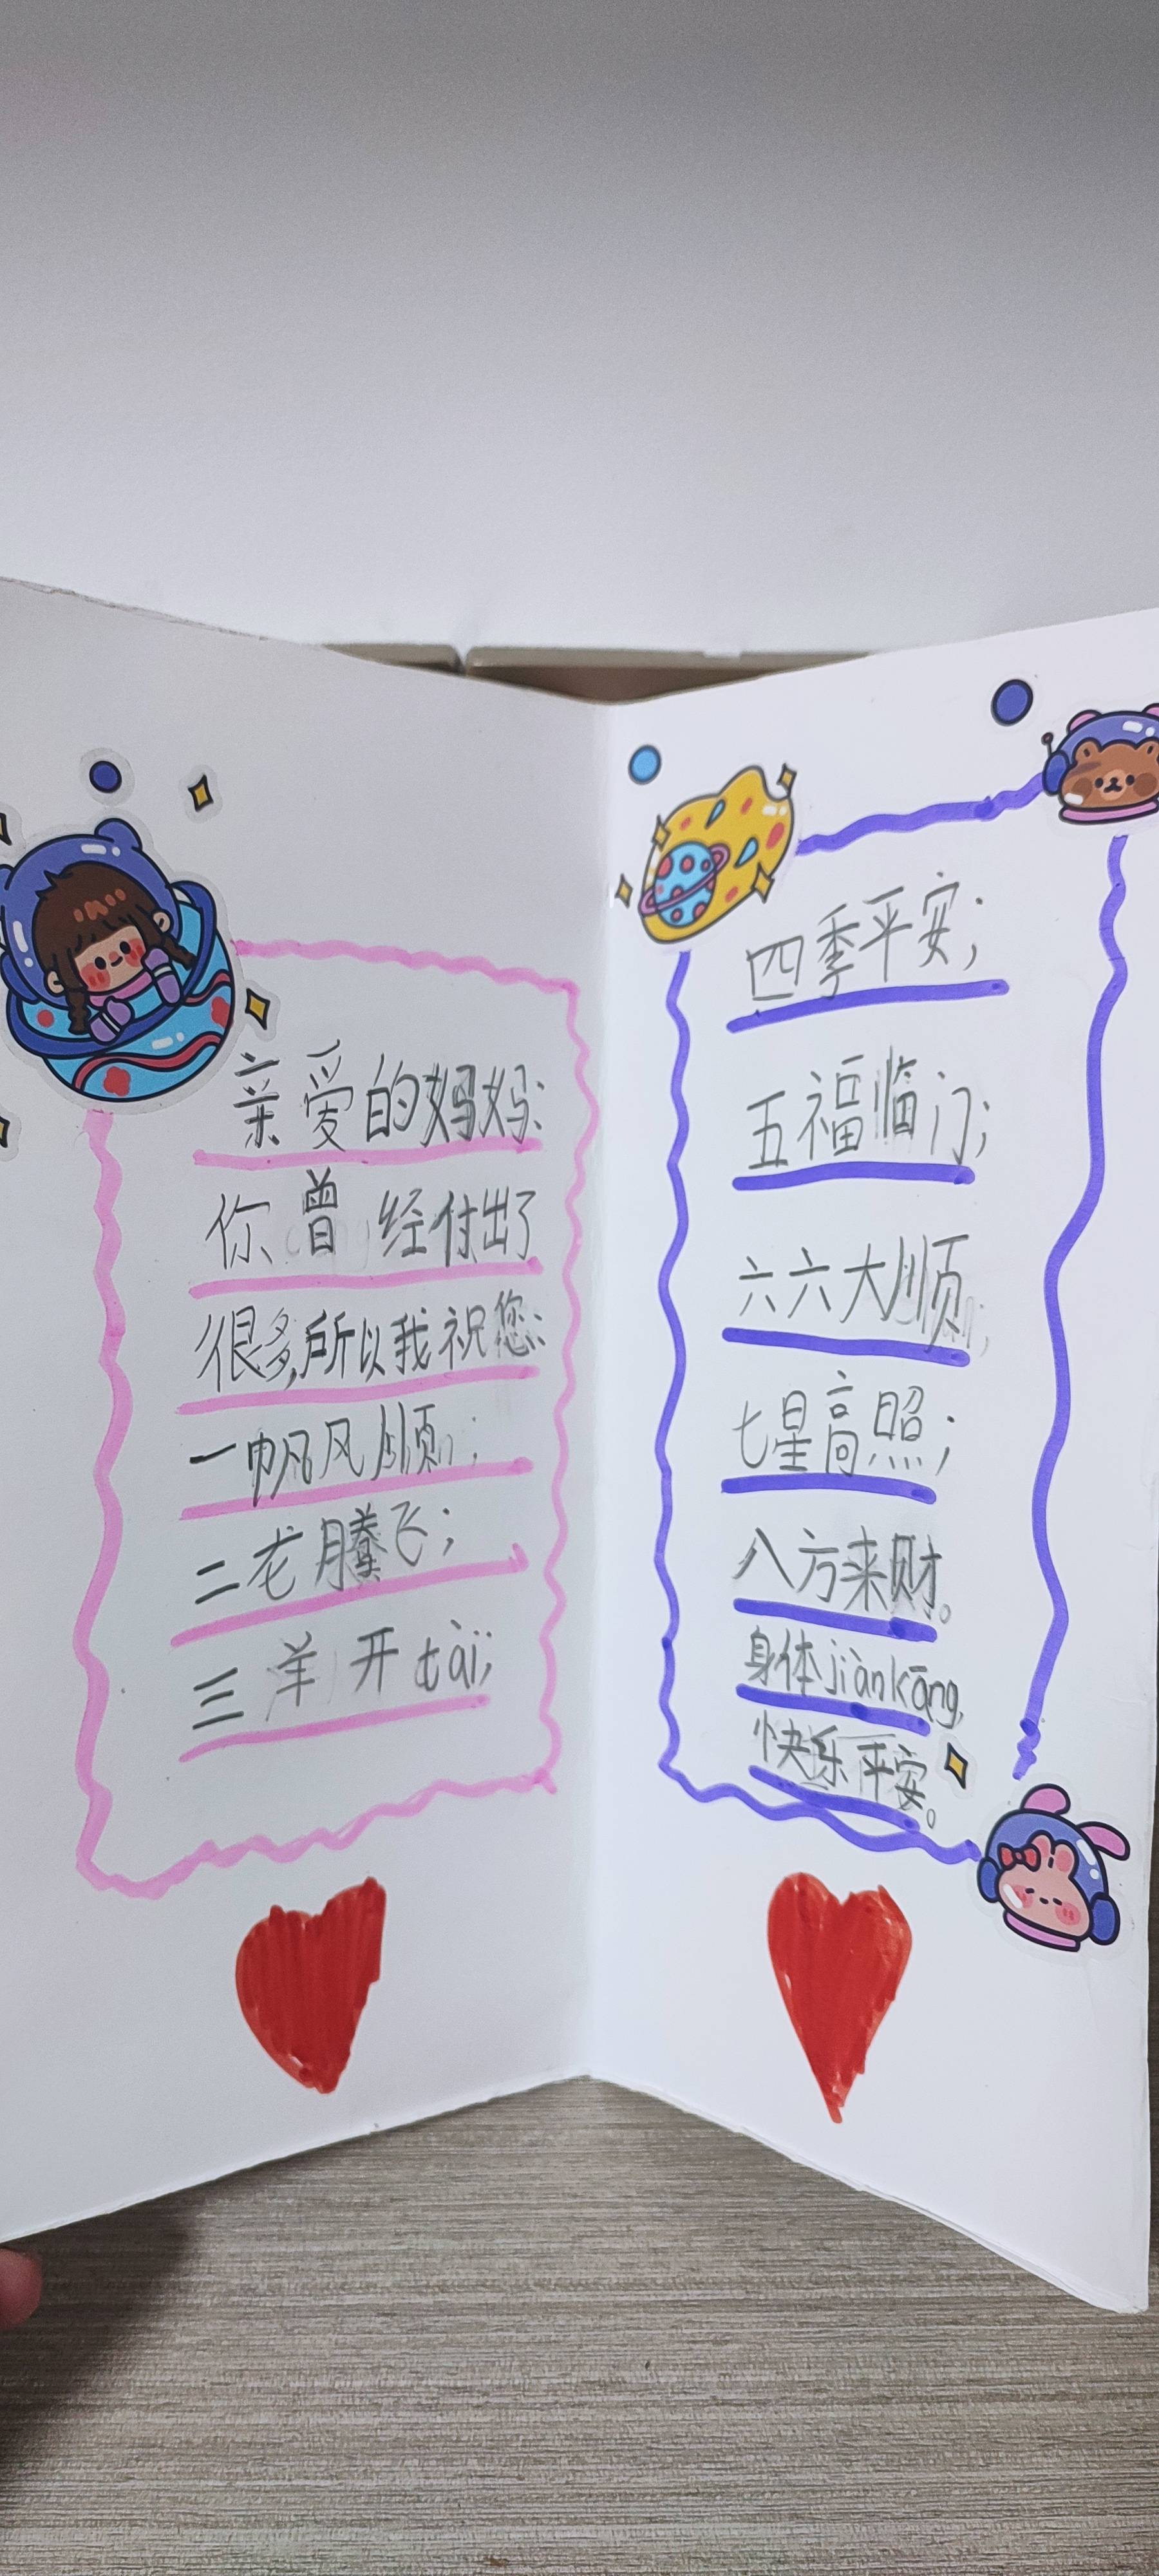 亲爱的妈妈:
你曾经付出了
很多,所以我祝您:
一帆风顺;
二龙腾飞;
三羊开tài;
四季平安;
五福临门;
六六大顺;
七星高照;
八方来财。
身体jiànkāng,
快乐平安。